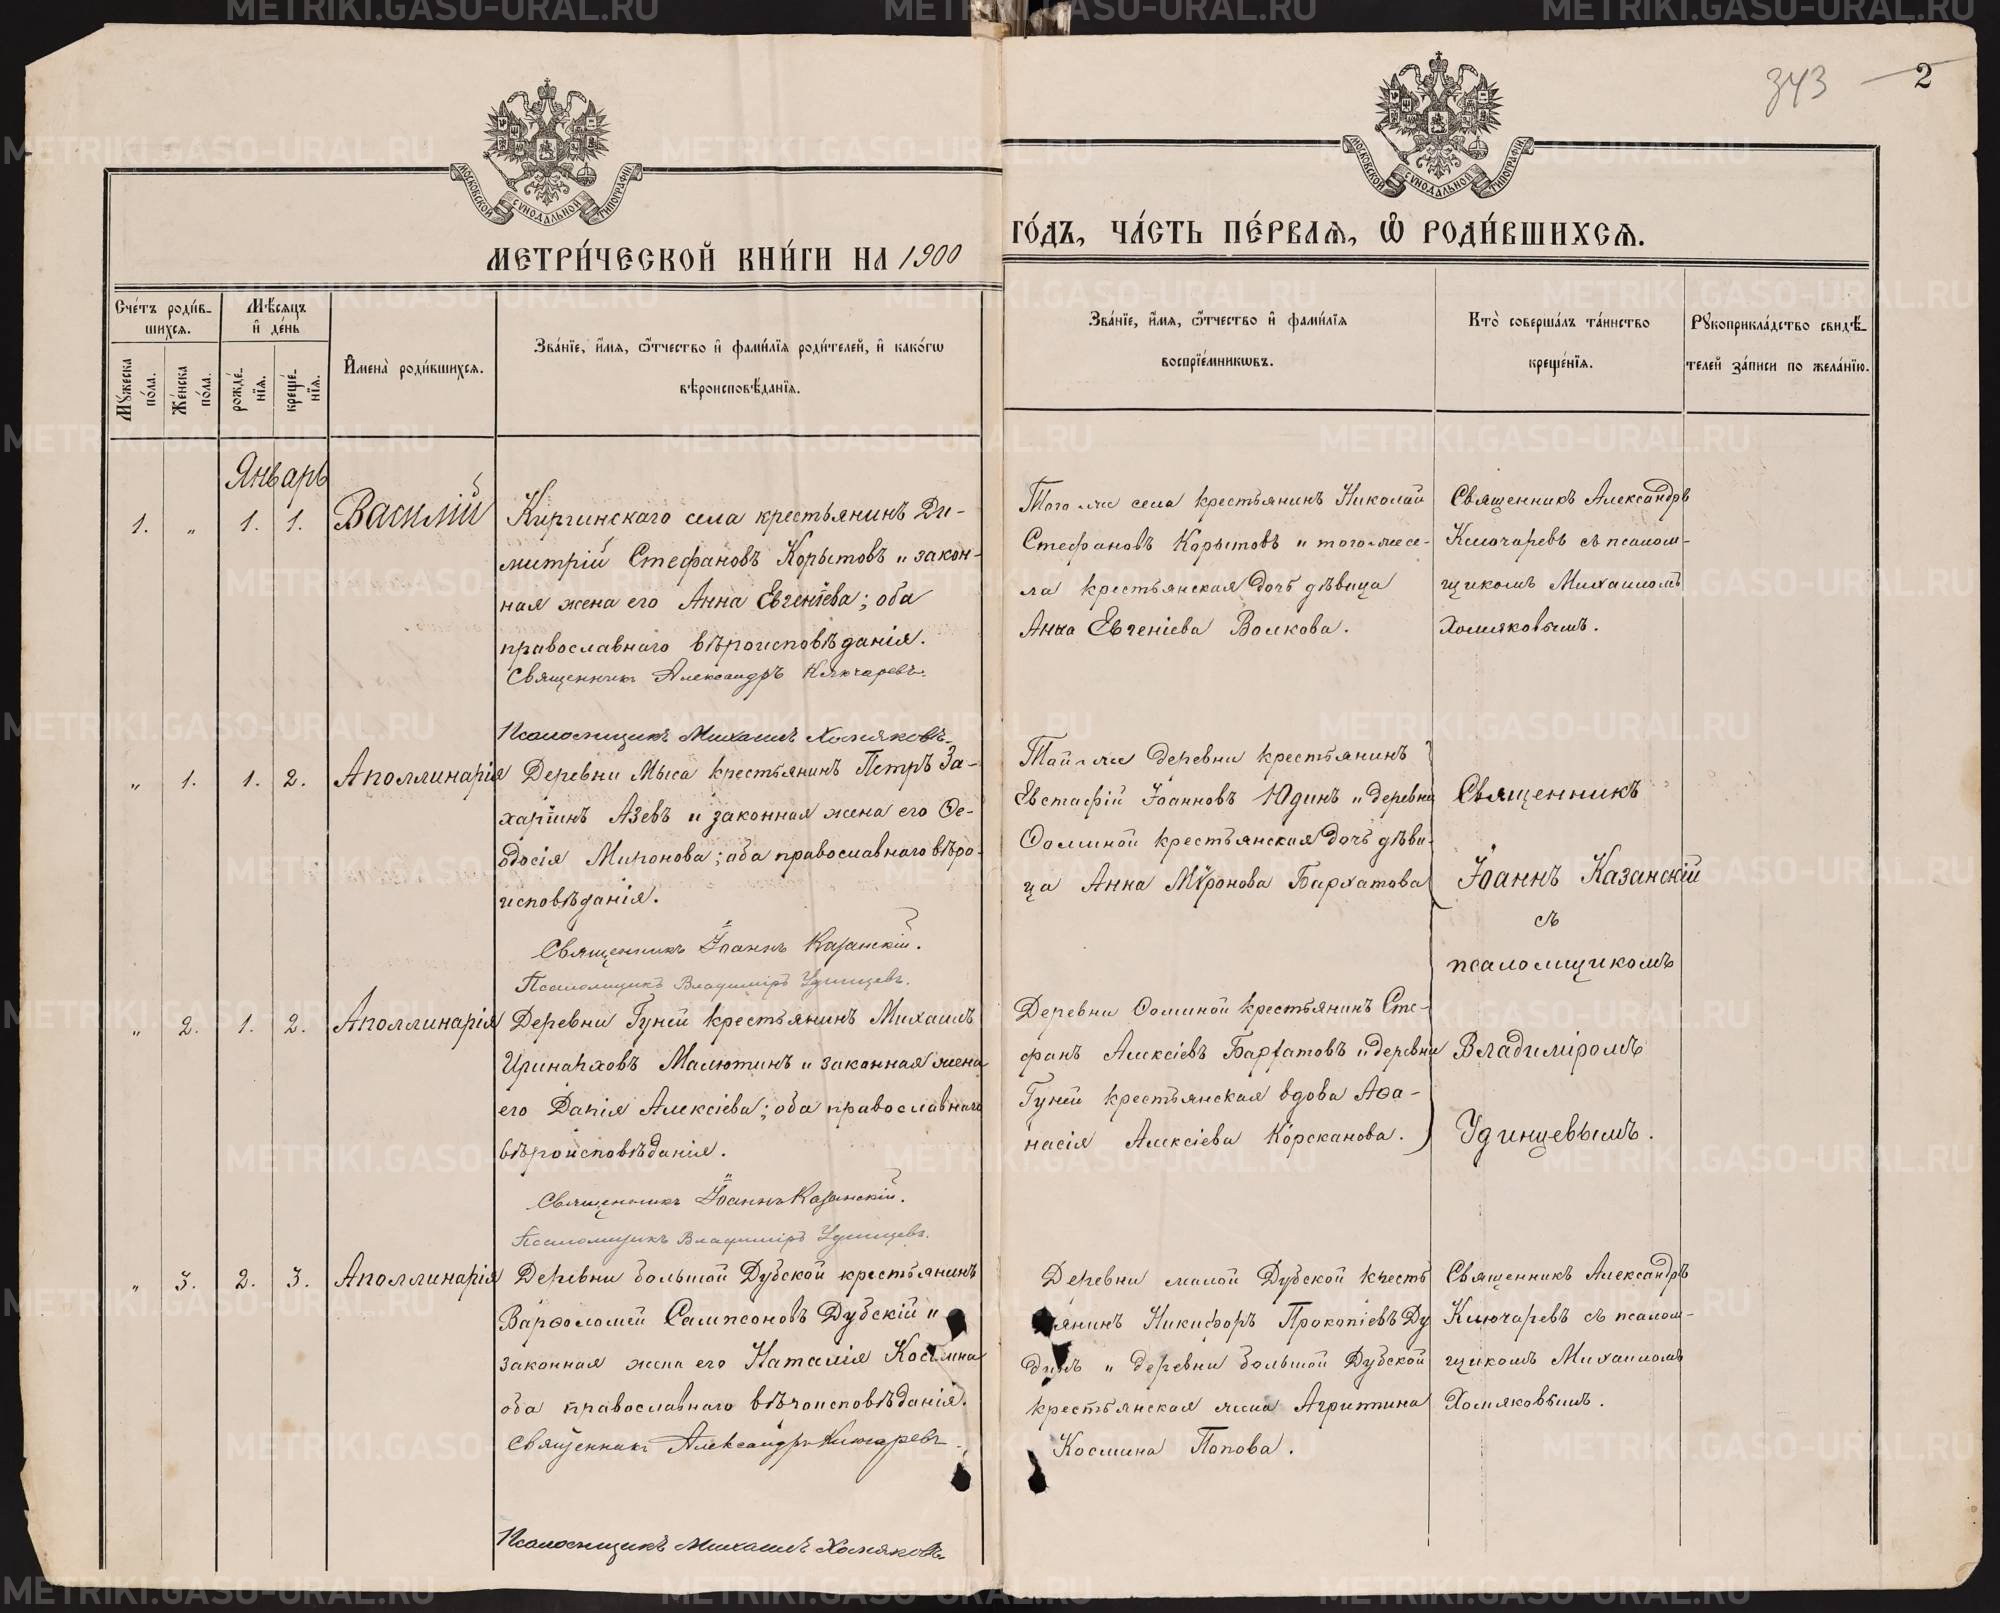 343 2
МОСКОВСКОЙ СѴНОДАЛЬНОЙ ТИПОГРАФІИ
МОСКОВСКОЙ СѴНОДАЛЬНОЙ ТИПОГРАФІИ
МЕТРИ́ЧЕСКОЙ КНИ́ГИ НА 1900
ГО́ДЪ, ЧА́СТЬ ПЕ́РВАѦ, Ѽ РОДИ́ВШИХСѦ.
Сче́тъ роди́в-
шихсѧ.
Мꙋжеска по́ла.
Же́нска по́ла.
Мѣ́сѧцъ
и҆ де́нь
рожде́-
нїѧ.
креще́-
нїѧ.
И҆мена̀ роди́вшихсѧ.
Зва́нїе, и҆́мѧ, ѻ҆́тчество и҆ фами́лїѧ роди́телей, и҆ како́гѡ
вѣроисповѣ́данїѧ.
Зва́нїе, и҆́мѧ, ѻ҆́тчество и҆ фами́лїѧ
воспрїе́мникѡвъ.
Кто̀ соверша́лъ та́инство
креще́нїѧ.
Рꙋкоприкла́дство свидѣ́-
телей за́писи по жела́нїю.
Январь
1. „ 1. 1. Василій
Киргинскаго села крестьянинъ Ди-
митрій Стефановъ Корытовъ и закон-
ная жена его Анна Евгеніева; оба
православнаго вѣроисповѣданія.
Священникъ Александръ Ключаревъ.
Псаломщикъ Михаилъ Хомяковъ.
Того же села крестьянинъ Николай
Стефановъ Корытовъ и того-же се-
ла крестьянская дочь дѣвица
Анна Евгеніева Волкова.
Священникъ Александръ
Ключаревъ съ псалом-
щикомъ Михаиломъ
Хомяковымъ.
„ 1. 1. 2. Аполлинарія
Деревни Мыса крестьянинъ Петръ За-
харіинъ Азевъ и законная жена его Ѳе-
одосія Миронова; оба православнаго вѣро-
исповѣданія.
Священникъ Іоаннъ Казанскій.
Псаломщикъ Владиміръ Удинцевъ.
Той-же деревни крестьянинъ
Евстафій Іоанновъ Юдинъ и деревни
Ѳоминой крестьянская дочь дѣви-
ца Анна Мѵронова Бархатова
Священникъ
Іоаннъ Казанскій
съ
псаломщикомъ
Владиміромъ
Удинцевымъ.
„ 2. 1. 2. Аполлинарія
Деревни Гуней крестьянинъ Михаилъ
Иринарховъ Малютинъ и законная жена
его Дарія Алексіева; оба православнаго
вѣроисповѣданія.
Священникъ Іоаннъ Казанскій.
Псаломщикъ Владиміръ Удинцевъ.
Деревни Ѳоминой крестьянинъ Сте-
фанъ Алексіевъ Бархатовъ и деревни
Гуней крестьянская вдова Аѳа-
насія Алексіева Корсканова.
„ 3. 2. 3. Аполлинарія
Деревни большой Дубской крестьянинъ
Варѳоломей Сампсоновъ Дубскій и
законная жена его Наталія Космина
оба православнаго вѣроисповѣданія.
Священникъ Александръ Ключаревъ.
Псаломщикъ Михаилъ Хомяковъ.
Деревни малой Дубской кресть
янинъ Никифоръ Прокопіевъ Ду
и деревни большой Дубской
крестьянская жена Агриппина
Космина Попова.
Священникъ Александръ
Ключаревъ съ псалом-
щикомъ Михаиломъ
Хомяковымъ.
METRIKI.GASO-URAL.RU